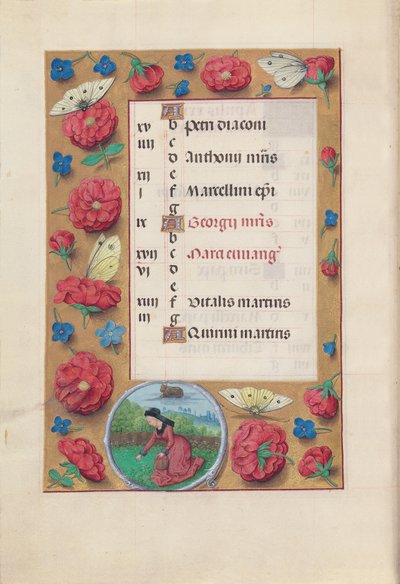 A
xv b Petri diaconi
iiii c
d Anthonii mris
xii e
i f Marcellini epi
g
ix A Georgii mris
b
xvii c Marci euuang
vi d
e
xiiii f Vitalis martiris
iii g
A Quirini martiris